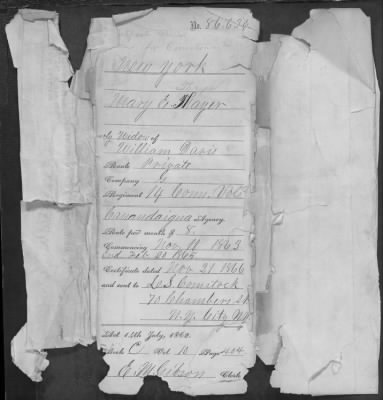 No. 86.634
New York
Mary E. Thayer
Widow of
William Davis
Rank Private
Company G
Regiment 14 Conn. Vols
Canandaigua Agency.
Rate per month $ 8.
Commencing Nov 11 1863
End Feb 20 1865
Certificate dated Nov. 21. 1866
and sent to L. S. Comstock
70 Chambers St
N. Y. City N.Y.
Act 14th July, 1862.
Book C Vol 10 Page 404
Clerk